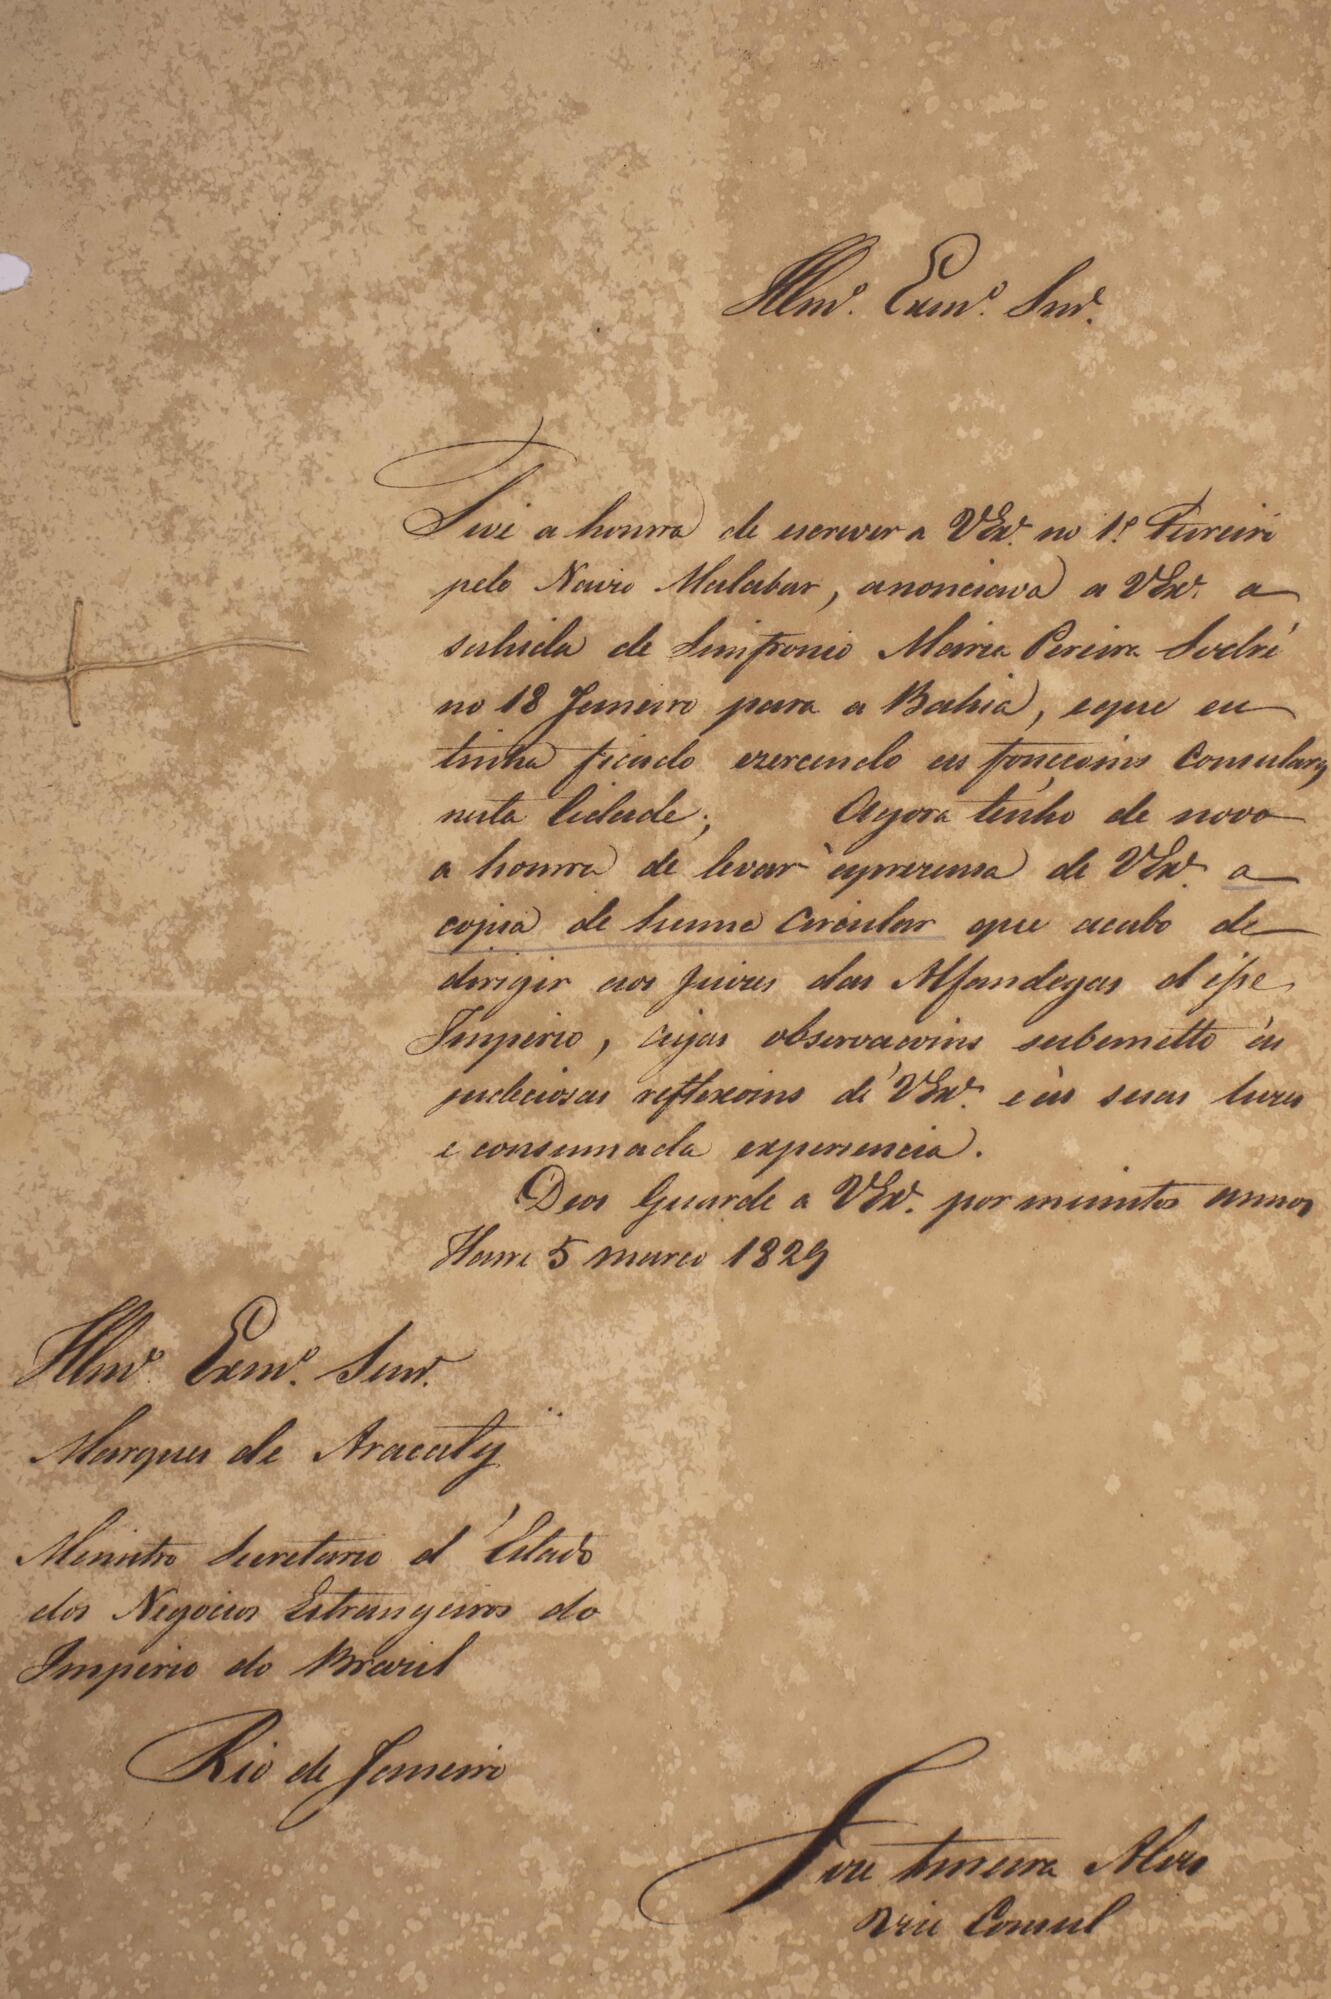 Illmo. Exmo. Snr.
Tive a honra de escrever a VExa. no 1º. Fevreiro
pelo Navio Malabar, anonciava a VExa. a
sahida de Simfronio Maria Pereira Sodré
no 18 Janeiro para a Bahia, eque eu
tinha ficado exercendo as fonçoins Consulares
nesta Cidade; Agora tenho de novo
a honra de levar aprezensa de VExa. a
copia de huma Circular que acabo de
dirigir aos Juizes das Alfandegas d'esse
Imperio, cujas observacoins submetto ás
judiciosas reflexoins de VExa. e ás suas luzes
e consumada experiencia.
Deos Guarde a VExa. por muintos annos
Havre 5 março 1829
Illmo. Exmo. Snr.
Marques de Aracaty
Ministro Secretario d'Estado
dos Negocios Estrangeiros do
Imperio do Brazil
Rio de Janeiro
Alves
Vice Consul